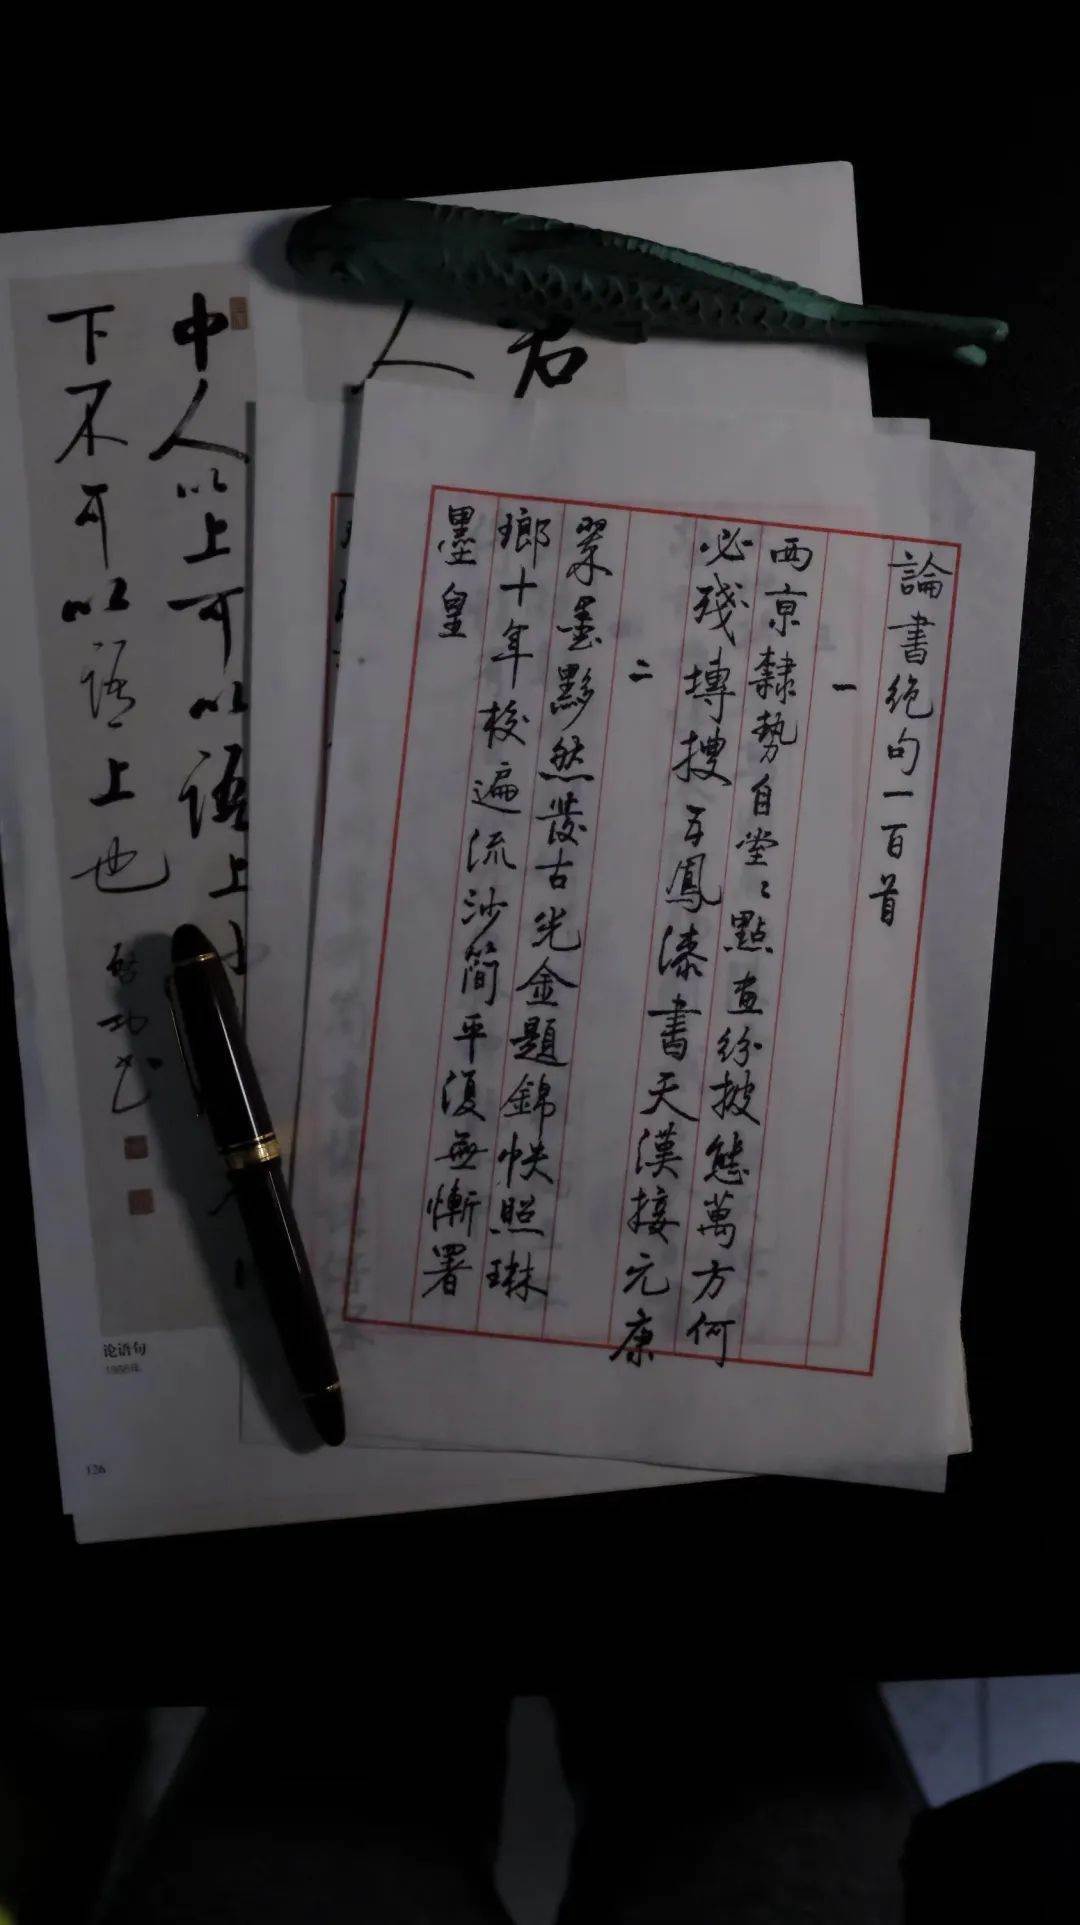 論書絕句一百首
一
西京隸勢自堂〻點畫紛披態萬方何
必殘塼搜五鳳漆書天漢接元康
二
翠墨黟然發古光金題錦帙照琳
瑯十年校遍流沙簡平復無慚署
墨皇
君
人
中人以上可以语上
下不可以语上也
启功书
论语句
126